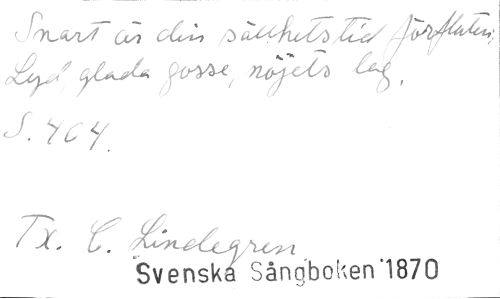 Snart är din sällhets tid förfluten,
Lyd, glada gosse, nöjets lag.
S. 464.
Tx. C. Lindegren
Svenska Sångboken 1870